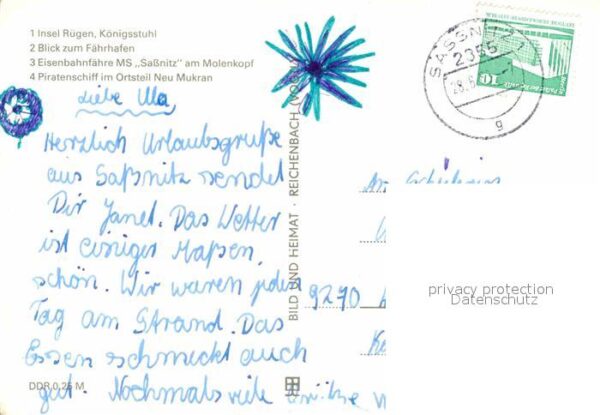 1 Insel Rügen, Königsstuhl
2 Blick zum Fährhafen
3 Eisenbahnfähre MS „Saßnitz" am Molenkopf
4 Piratenschiff im Ortsteil Neu Mukran
Liebe Ulla,
Herzlich Urlaubsgrüße
aus Saßnitz sendet
Dir Janet. Das Wetter
ist einiger Maßen
schön. Wir waren jeden
Tag am Strand. Das
Essen schmeckt auch
gut. Nochmals viele Grüße v
DDR 0,25 M
BILD UND HEIMAT · REICHENBACH (VOGTL
SASSNITZ 1
2355
g
10
An
9270
privacy protection
Datenschutz